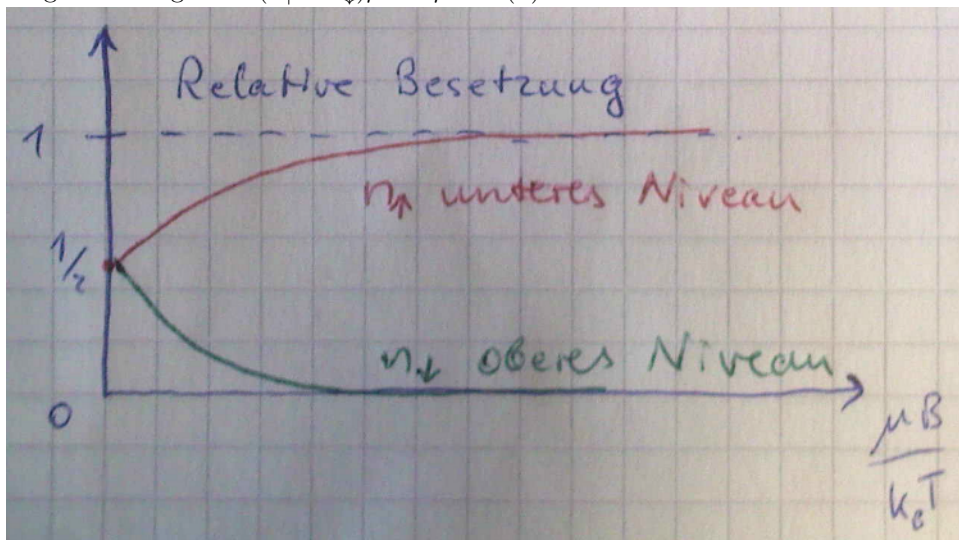 Relative Besetzung
1
n↑ unteres Niveau
1/2
n↓ oberes Niveau
0
μB
k_BT